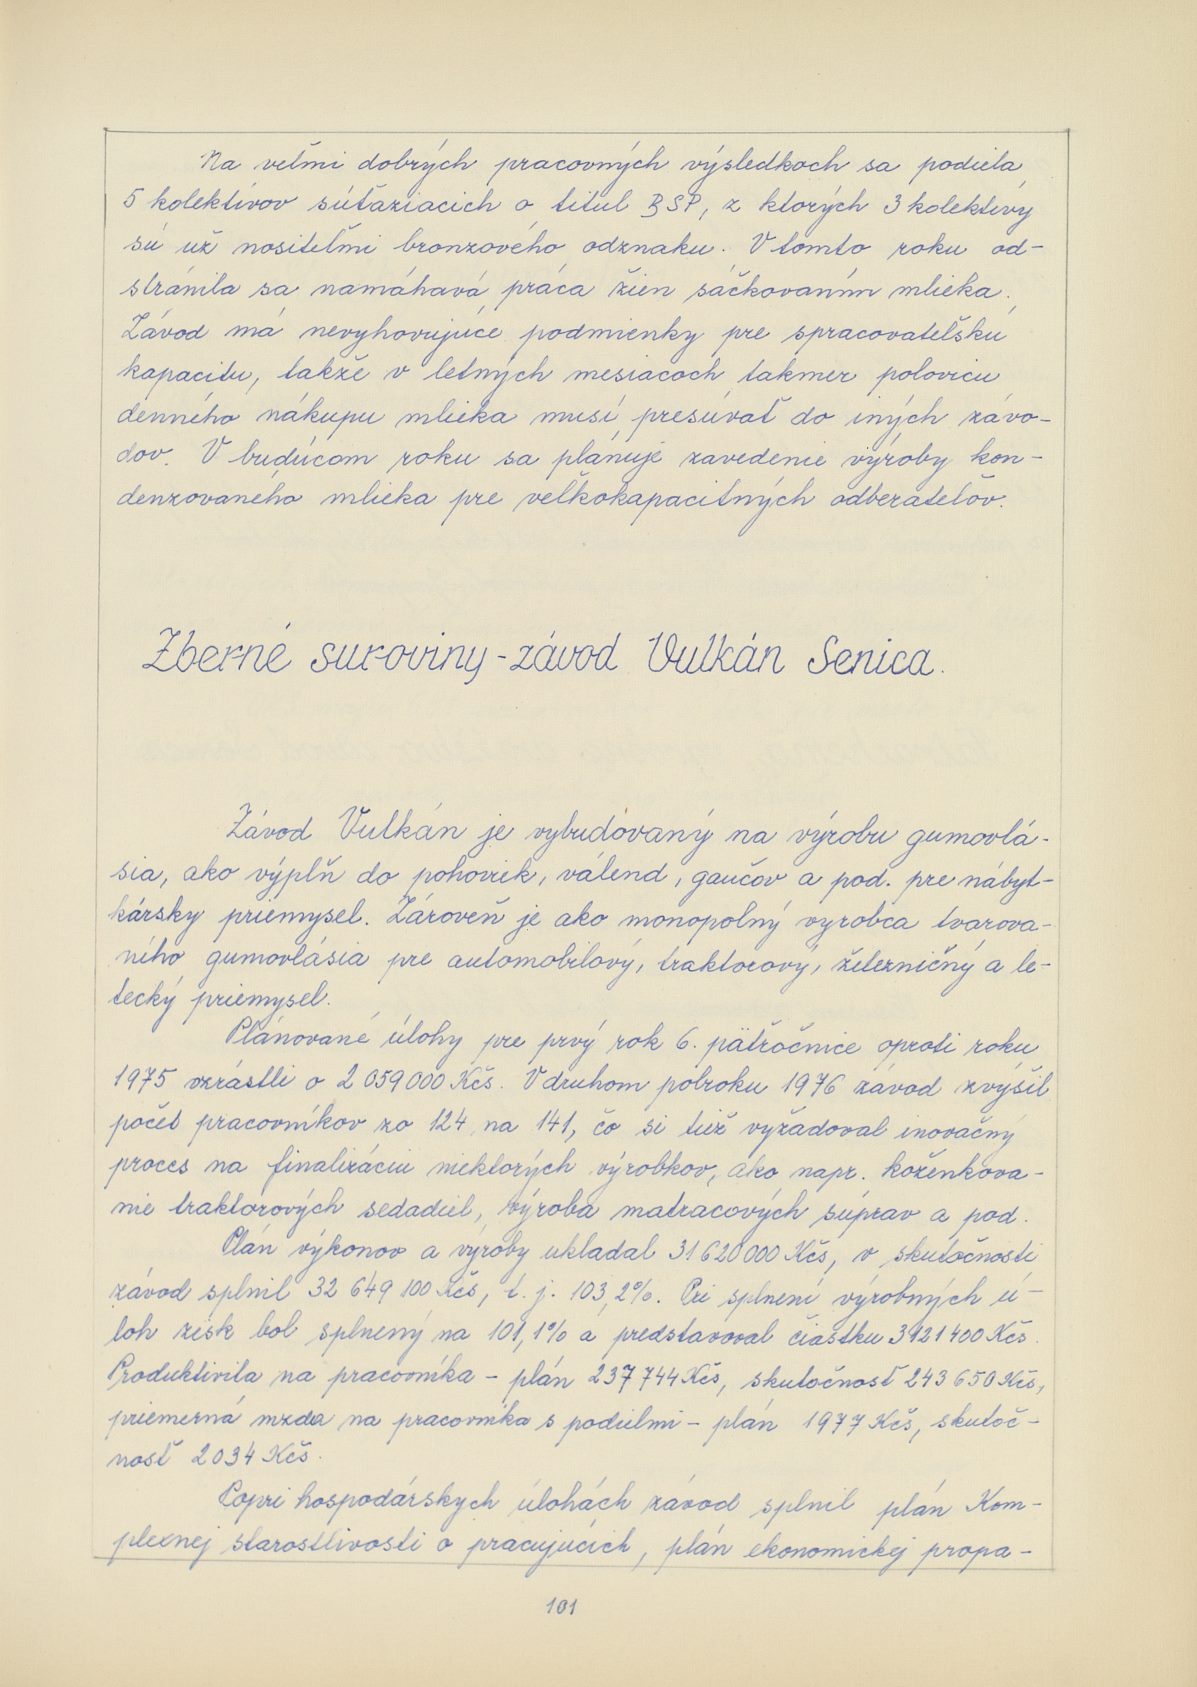 Na veľmi dobrých pracovných výsledkoch sa podieľa
5 kolektívov súťažiacich o titul BSP, z ktorých 3 kolektívy
sú už nositeľmi bronzového odznaku. V tomto roku od-
stránila sa namáhavá práca žien sáčkovaním mlieka.
Závod má nevyhovujúce podmienky pre spracovateľskú
kapacitu, takže v letných mesiacoch takmer polovicu
denného nákupu mlieka musí presúvať do iných závo-
dov. V budúcom roku sa plánuje zavedenie výroby kon-
denzovaného mlieka pre veľkokapacitných odberateľov.
Zberné suroviny - závod Vulkán Senica.
Závod Vulkán je vybudovaný na výrobu gumovlá-
sia, ako výplň do pohoviek, válend, gaučov a pod. pre nábyt-
kársky priemysel. Zároveň je ako monopolný vyrobca tvarova-
ného gumovlásia pre automobilový, traktorovy, železničný a le-
tecký priemysel.
Plánované úlohy pre prvý rok 6. päťročnice oproti roku
1975 vzrástli o 2 059 000 Kčs. V druhom polroku 1976 závod zvýšil
počet pracovníkov zo 124 na 141, čo si tiež vyžadoval inovačný
proces na finalizáciu niektorých výrobkov, ako napr. koženkova-
nie traktorových sedadiel, výroba matracových súprav a pod.
Plán výkonov a výroby ukladal 31 620 000 Kčs, v skutočnosti
závod splnil 32 649 100 Kčs, t. j. 103,2%. Pri splnení výrobných ú-
loh zisk bol splnený na 101,1% a predstavoval čiastku 3 921 400 Kčs.
Produktivita na pracovníka - plán 237 744 Kčs, skutočnosť 243 650 Kčs,
priemerná mzda na pracovníka s podielmi - plán 1977 Kčs, skutoč-
nosť 2 034 Kčs.
Popri hospodárskych úlohách závod splnil plán Kom-
plexnej starostlivosti o pracujúcich, plán ekonomickej propa-
101